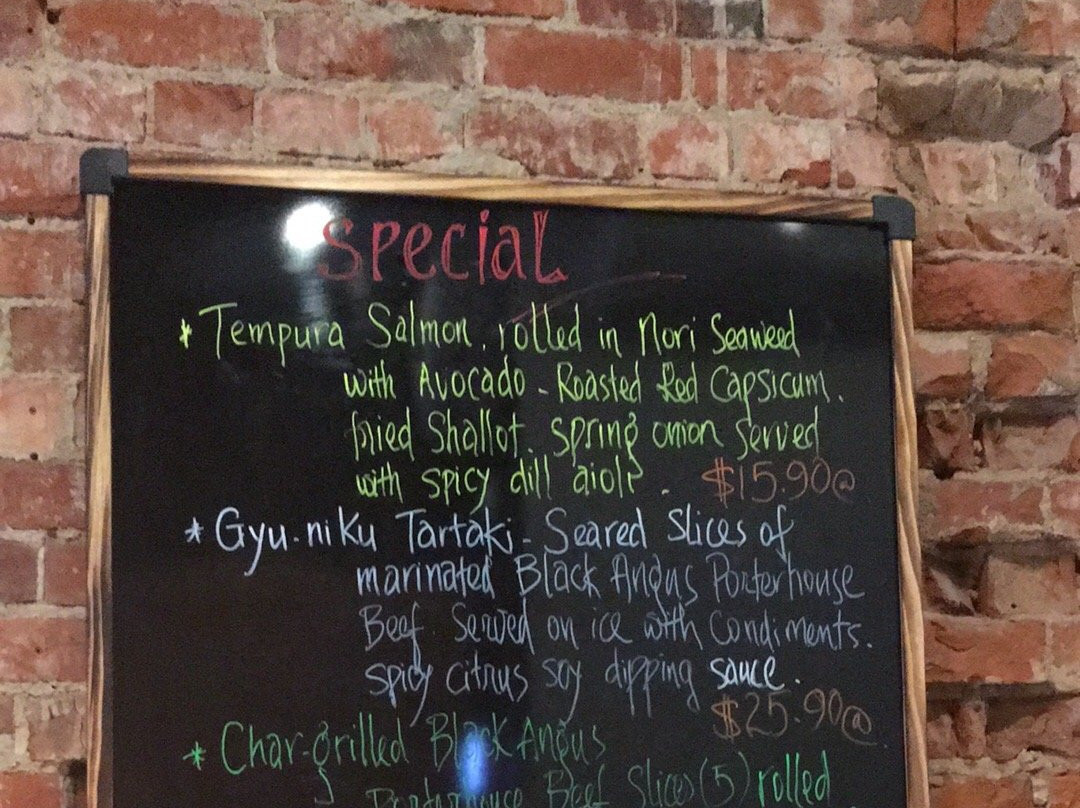 SPECiAL
* Tempura Salmon. rolled in Nori Seaweed
with Avocado - Roasted Red Capsicum.
fried Shallot. spring onion served
with spicy dill aioli. $15.90@
* Gyu-niku Tartaki - Seared Slices of
marinated Black Angus Porterhouse
Beef. Served on ice with Condiments.
spicy citrus soy dipping sauce.
$25.90@
* Char-grilled Black Angus
Porterhouse Beef Slices (5) rolled